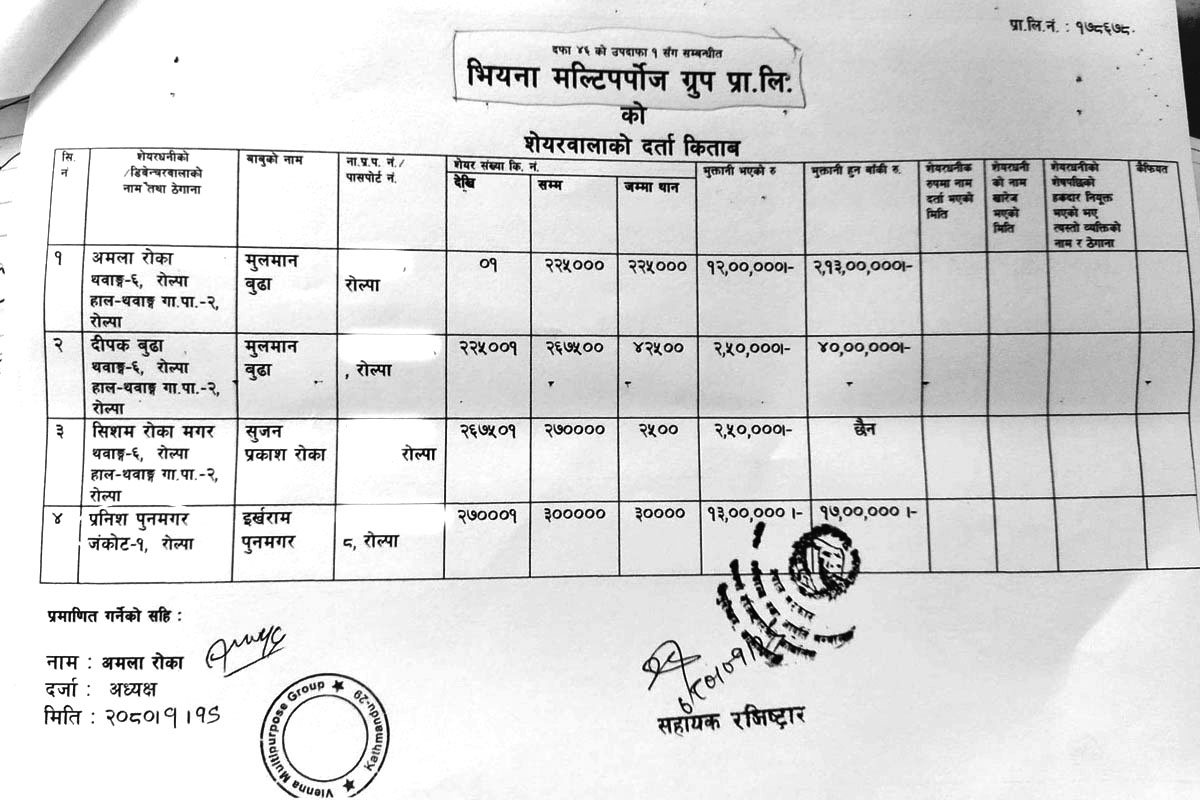 प्रा.लि.नं. : १७८६७८
दफा ४६ को उपदाफा १ संग सम्बन्धीत
भियना मल्टिपर्पोज ग्रुप प्रा.लि:
को
शेयरवालाको दर्ता किताब
सि. नं
शेयरधनीको /डिबेन्चरवालाको नाम तथा ठेगाना
बाबुको नाम
ना.प्र.प. नं./ पासपोर्ट नं.
शेयर संख्या कि. नं.
देखि
सम्म
जम्मा थान
भुक्तानी भएको रु
भुक्तानी हुन बाँकी रु.
शेयरधनीक रुपमा नाम दर्ता भएको मिति
शेयरधनी को नाम खारेज भएको मिति
शेयरधनीको शेषपछिको हकदार नियुक्त भएको भए त्यस्तो व्यक्तिको नाम र ठेगाना
कैफियत
१ अमला रोका मुलमान ०१ २२५००० २२५००० १२,००,०००।- २,१३,००,०००।-
थवाङ्ग-६, रोल्पा बुढा रोल्पा
हाल-थवाङ्ग गा.पा.-२,
रोल्पा
२ दीपक बुढा मुलमान २२५००१ २६७५०० ४२५०० २,५०,०००।- ४०,००,०००।-
थवाङ्ग-६, रोल्पा बुढा , रोल्पा
हाल-थवाङ्ग गा.पा.-२,
रोल्पा
३ सिशम रोका मगर सुजन २६७५०१ २७०००० २५०० २,५०,०००।- छैन
थवाङ्ग-६, रोल्पा प्रकाश रोका रोल्पा
हाल-थवाङ्ग गा.पा.-२,
रोल्पा
४ प्रनिश पुनमगर इर्खराम २७०००१ ३००००० ३०००० १३,००,००० ।- १७,००,००० ।-
जंकोट-१, रोल्पा पुनमगर ८, रोल्पा
प्रमाणित गर्नेको सहि :
नाम : अमला रोका
दर्जा : अध्यक्ष
मिति : २०८०।९।१८
Vienna Multipurpose Group
Kathmandu-29
सहायक रजिष्ट्रार